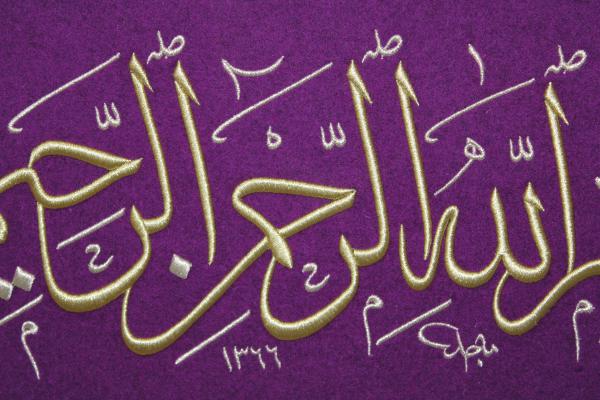 الله الرحمن الرحيم
١٣٦٦